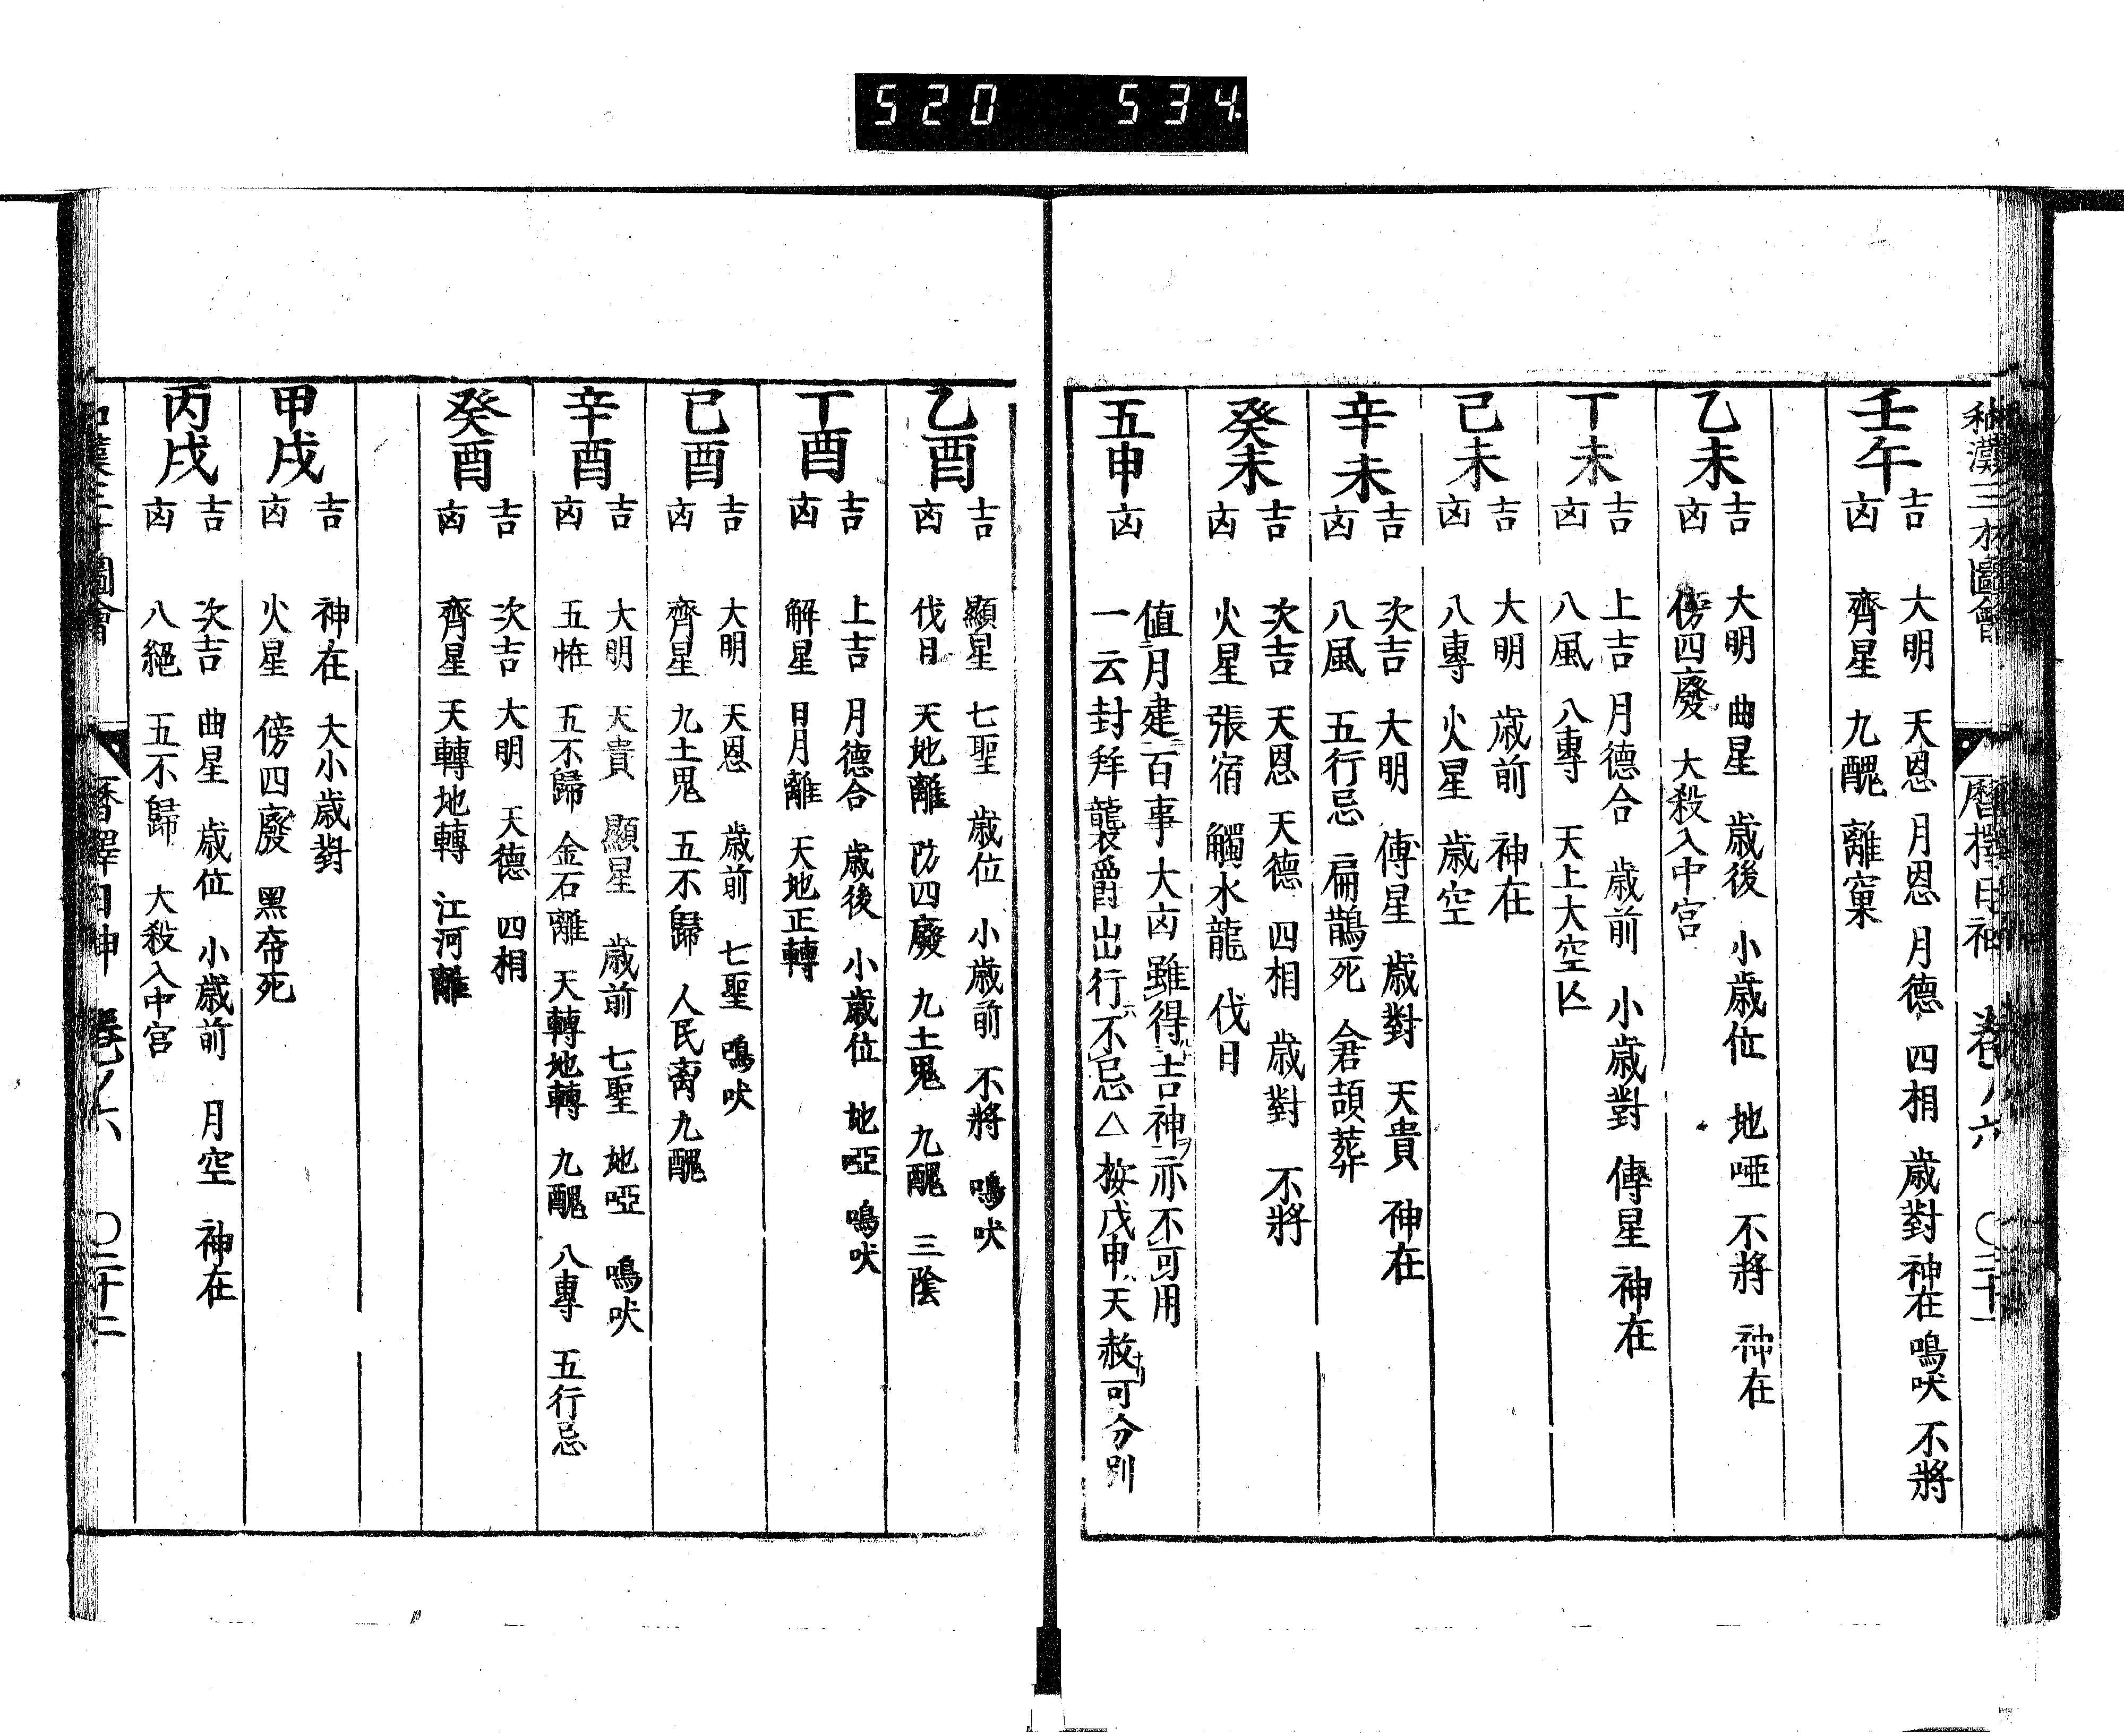 520 534
和漢三才圖會 暦擇日神 卷ノ六 〇二十一
壬午 吉 大明 天恩 月恩 月德 四相 歳對 神在 鳴吠 不將
凶 齊星 九醜 離窠
乙未 吉 大明 曲星 歳後 小歳位 地啞 不將 神在
凶 傍四廢 大殺入中宮
丁未 吉 上吉 月德合 歳前 小歳對 傳星 神在
凶 八風 八專 天上大空亾
己未 吉 大明 歳前 神在
凶 八專 火星 歳空
辛未 吉 次吉 大明 傳星 歳對 天貴 神在
凶 八風 五行忌 扁鵲死 倉頡葬
癸未 吉 次吉 天恩 天德 四相 歳對 不將
凶 火星 張宿 觸水龍 伐日
五申 凶 値二月建一百事大凶雖得吉神ヲ亦不可用
一云封拜襲爵出行不忌△按戊申天赦可分別
乙酉 吉 顯星 七聖 歳位 小歳前 不將 鳴吠
凶 伐日 天地離 防四廢 九土鬼 九醜 三陰
丁酉 吉 上吉 月德合 歳後 小歳位 地啞 鳴吠
凶 解星 日月離 天地正轉
己酉 吉 大明 天恩 歳前 七聖 鳴吠
凶 齊星 九土鬼 五不歸 人民离 九醜
辛酉 吉 大明 天貴 顯星 歳前 七聖 地啞 鳴吠
凶 五恠 五不歸 金石離 天轉地轉 九醜 八專 五行忌
癸酉 吉 次吉 大明 天德 四相
凶 齊星 天轉地轉 江河離
甲戌 吉 神在 大小歳對
凶 火星 傍四廢 黑帝死
丙戌 吉 次吉 曲星 歳位 小歳前 月空 神在
凶 八絕 五不歸 大殺入中宮
和漢三才圖會 暦擇日神 卷ノ六 〇二十二